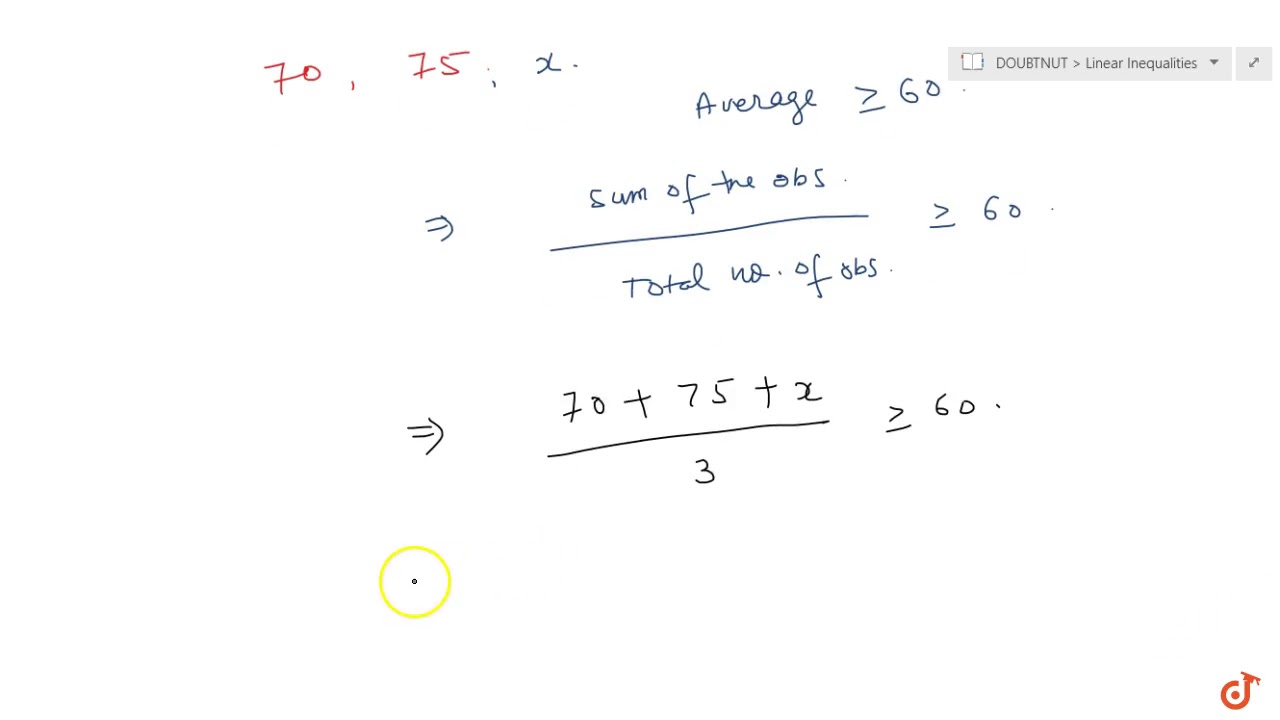 70, 75, x.
DOUBTNUT > Linear Inequalities
Average ≥ 60.
⇒ sum of the obs. / Total no. of obs. ≥ 60.
⇒ 70 + 75 + x / 3 ≥ 60.